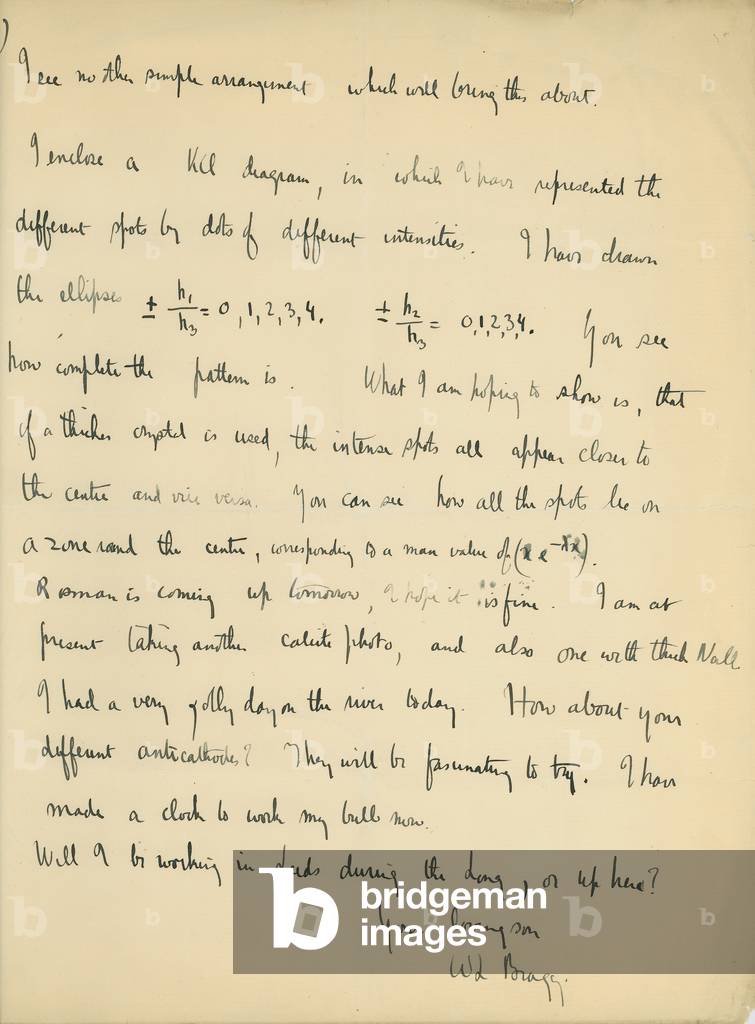 )
I see no other simple arrangement which will bring this about.
I enclose a KCl diagram, in which I have represented the
different spots by dots of different intensities. I have drawn
the ellipses ± h₁/h₃ = 0, 1, 2, 3, 4. ± h₂/h₃ = 0,1,2,3,4. You see
how complete the pattern is. What I am hoping to show is, that
if a thicker crystal is used, the intense spots all appear closer to
the centre and vice versa. You can see how all the spots lie on
a zone round the centre, corresponding to a max value of
Rosman is coming up tomorrow, I hope it is fine. I am at
present taking another calcite photo, and also one with thick NaCl
I had a very jolly day on the river today. How about your
different anticathodes? They will be fascinating to try. I have
made a clock to work my bulb now.
Will I be working in Leeds during the Long, or up here?
Your loving son
WL Bragg.
bridgeman
images